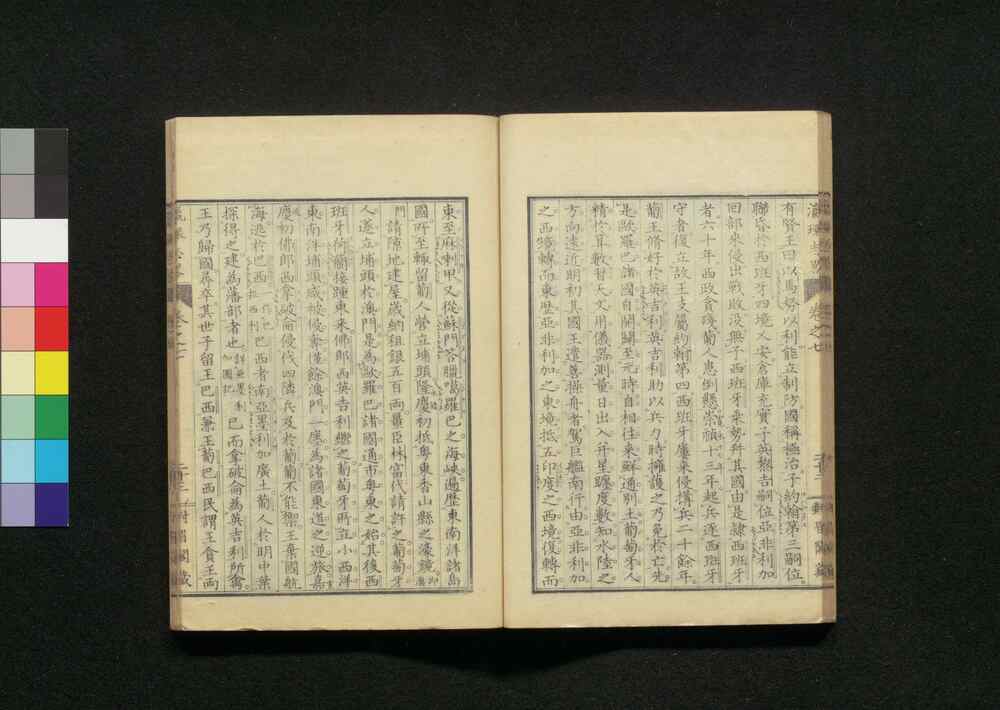 卷之七
有賢王曰以馬努以利能立制防國稱極治子約翰第三嗣位
聯昏於西班牙四境乂安倉庫充實子英黎吉嗣位亞非利加
回部來侵出戰敗沒無子西班牙乘勢幷其國由是隸西班牙
者六十年西政貪殘葡人患倒懸崇禎十三年起兵逐西班牙
守者復立故王支屬約翰第四西班牙屢來侵搆兵二十餘年
葡王脩好於英吉利英吉利助以兵力時擁護之乃免於亡先
是歐羅巴諸國自開闢至元時自相往來鮮通別土葡萄牙人
精於算數習天文用儀器測量日出入幷星躔度數知水陸之
方向遠近明初其國王遣善操舟者駕巨艦南行由亞非利加
之西嶴轉而東歷亞非利加之東境抵五印度之西境復轉而
東至麻剌甲又從蘇門答臘噶羅巴之海峽遍歷東南洋諸島
國所至輒留葡人營立埔頭隆慶初抵粵東香山縣之濠鏡
請隙地建屋歲納租銀五百兩疆臣林富代請許之葡萄牙
人遂立埔頭於澳門是為歐羅巴諸國通市粵東之始其後西
班牙荷蘭接踵東來佛郎西英吉利繼之葡萄牙所立小西洋
東南洋埔頭咸被侵奪僅餘澳門一廛為諸國東道之逆旅嘉
慶初佛郎西拿破侖侵伐四鄰兵及於葡葡不能禦王棄國航
海逃於巴西巴西者南亞墨利加廣土葡人於明中葉
探得之建為藩部者也已而拿破侖為英吉利所禽
王乃歸國尋卒其世子留王巴西兼王葡巴西民謂王貪王兩